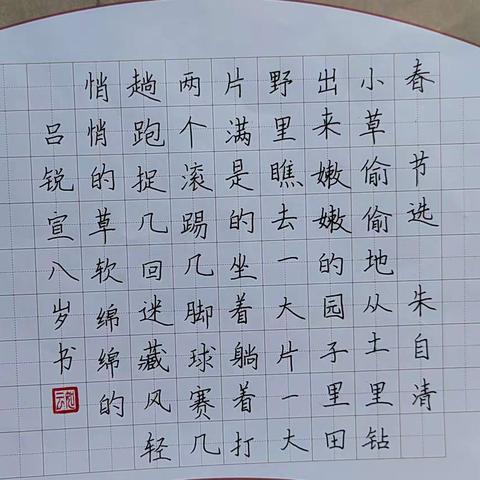 春 节选 朱自清
小草偷偷地从土里钻
出来嫩嫩的园子里田
野里瞧去一大片一大
片满是的坐着躺着打
两个滚踢几脚球赛几
趟跑捉几回迷藏风轻
悄悄的草软绵绵的
吕锐宣八岁书